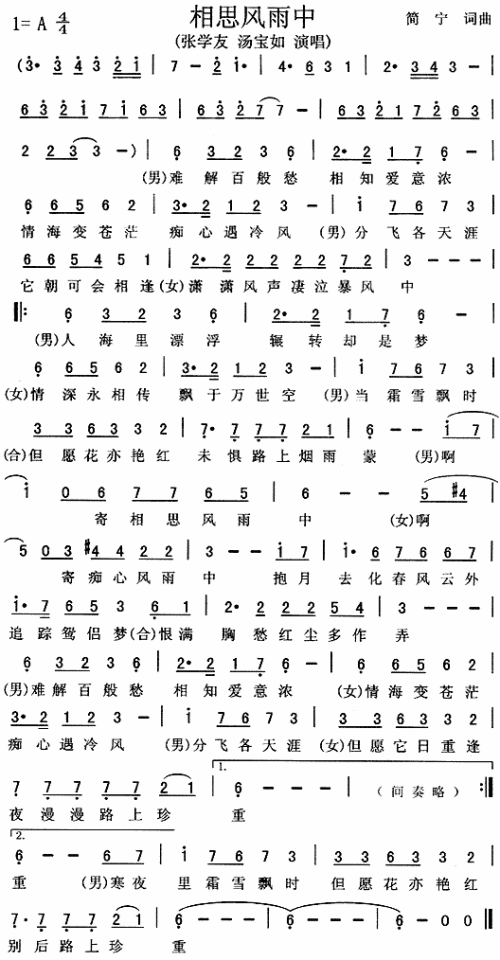 相思风雨中
1=A 4/4
简 宁 词曲
(张学友 汤宝如 演唱)
(3· 3 4 3 2 1 | 7 - 2 1· | 4· 6 3 1 | 2· 3 4 3 |
6 3 2 1 7 1 6 3 | 6 3 2 7 7 - | 6 6 3 2 1 7 2 6 3 |
2 2 3 3 -) | 6 3 2 3 6 | 2· 2 1 7 6 - |
(男)难 解 百 般 愁 相 知 爱 意 浓
6 6 5 6 2 | 3· 2 1 2 3 - | 1 7 6 7 3 |
情 海 变 苍 茫 痴 心 遇 冷 风 (男) 分 飞 各 天 涯
6 6 5 4 5 1 | 2· 2 2 2 2 2 7 2 | 3 - - - |
它 朝 可 会 相 逢 (女) 潇 潇 风 声 凄 泣 暴 风 中
‖: 6 3 2 3 6 | 2· 2 1 7 6 - |
(男)人 海 里 漂 浮 辗 转 却 是 梦
6 6 5 6 2 | 3· 2 1 2 3 - | 1 7 6 7 3 |
(女)情 深 永 相 传 飘 于 万 世 空 (男) 当 霜 雪 飘 时
3 3 6 3 3 2 | 7· 7 7 7 2 1 | 6 - - 1 7 |
(合)但 愿 花 亦 艳 红 未 惧 路 上 烟 雨 蒙 (男)啊
1 0 6 7 7 6 5 | 6 - - 5 #4 |
寄 相 思 风 雨 中 (女)啊
5 0 3 #4 4 2 2 | 3 - - 1 7 | 1· 6 7 6 7 6 |
寄 痴 心 风 雨 中 抱 月 去 化 春 风 云 外
1· 7 6 5 3 6 1 | 2· 2 2 2 5 4 | 3 - - - |
追 踪 鸳 侣 梦 (合) 恨 满 胸 愁 红 尘 多 作 弄
6 3 2 3 6 | 2· 2 1 7 6 - | 6 6 5 6 2 |
(男)难 解 百 般 愁 相 知 爱 意 浓 (女)情 海 变 苍 茫
3· 2 1 2 3 - | 1 7 6 7 3 | 3 3 6 3 3 2 |
痴 心 遇 冷 风 (男)分 飞 各 天 涯 (女)但 愿 它 日 重 逢
1.
7 7 7 7 7 2 1 | 6 - - - | - - - - :‖
(间 奏 略)
夜 漫 漫 路 上 珍 重
2.
6 - - 6 7 | 1 7 6 7 3 | 3 3 6 3 3 2 |
重 (男)寒 夜 里 霜 雪 飘 时 但 愿 花 亦 艳 红
7· 7 7 7 2 1 | 6 - - - | 6 - - - | 6 - 0 0 ‖
别 后 路 上 珍 重